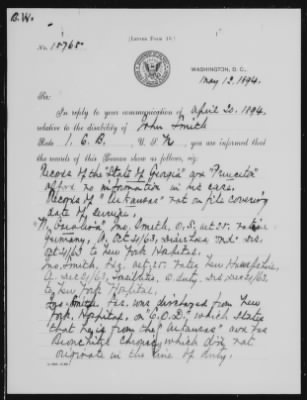 B.W.
[LETTER FORM 19.]
No. 15765.
WASHINGTON, D. C.,
May 12, 1894.
Sir:
In reply to your communication of April 20, 1894,
relative to the disability of John Smith
Rate 1. C. B., U. S. N., you are informed that
the records of this Bureau show as follows, viz:
Record of the "State of Georgia" and "Princeton"
afford no information in his case.
Records of "Arkansas" not on file covering
date of service.
"N. Carolina" Jno. Smith, O.S., aet 25.
Germany, A. Oct 4/63, Diarrhoea
Oct 4/63 to New York Hospital.
Jno. Smith, aet 25. New Hampshire,
A. Dec 21/63, Tonsillitis, O duty,
to New York Hospital.
Jno. Smith, was discharged from New
York Hospital, on "C.O.D." which states
"that he is from the "Arkansas" and has
Bronchitis Chronic, which did not
originate in the line of duty."